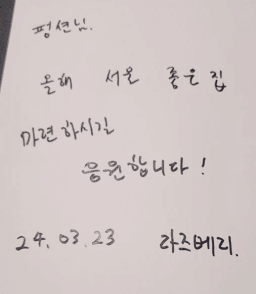 펑션님.
올해 서울 좋은 집
마련하시길
응원합니다!
24.03.23 라즈베리.